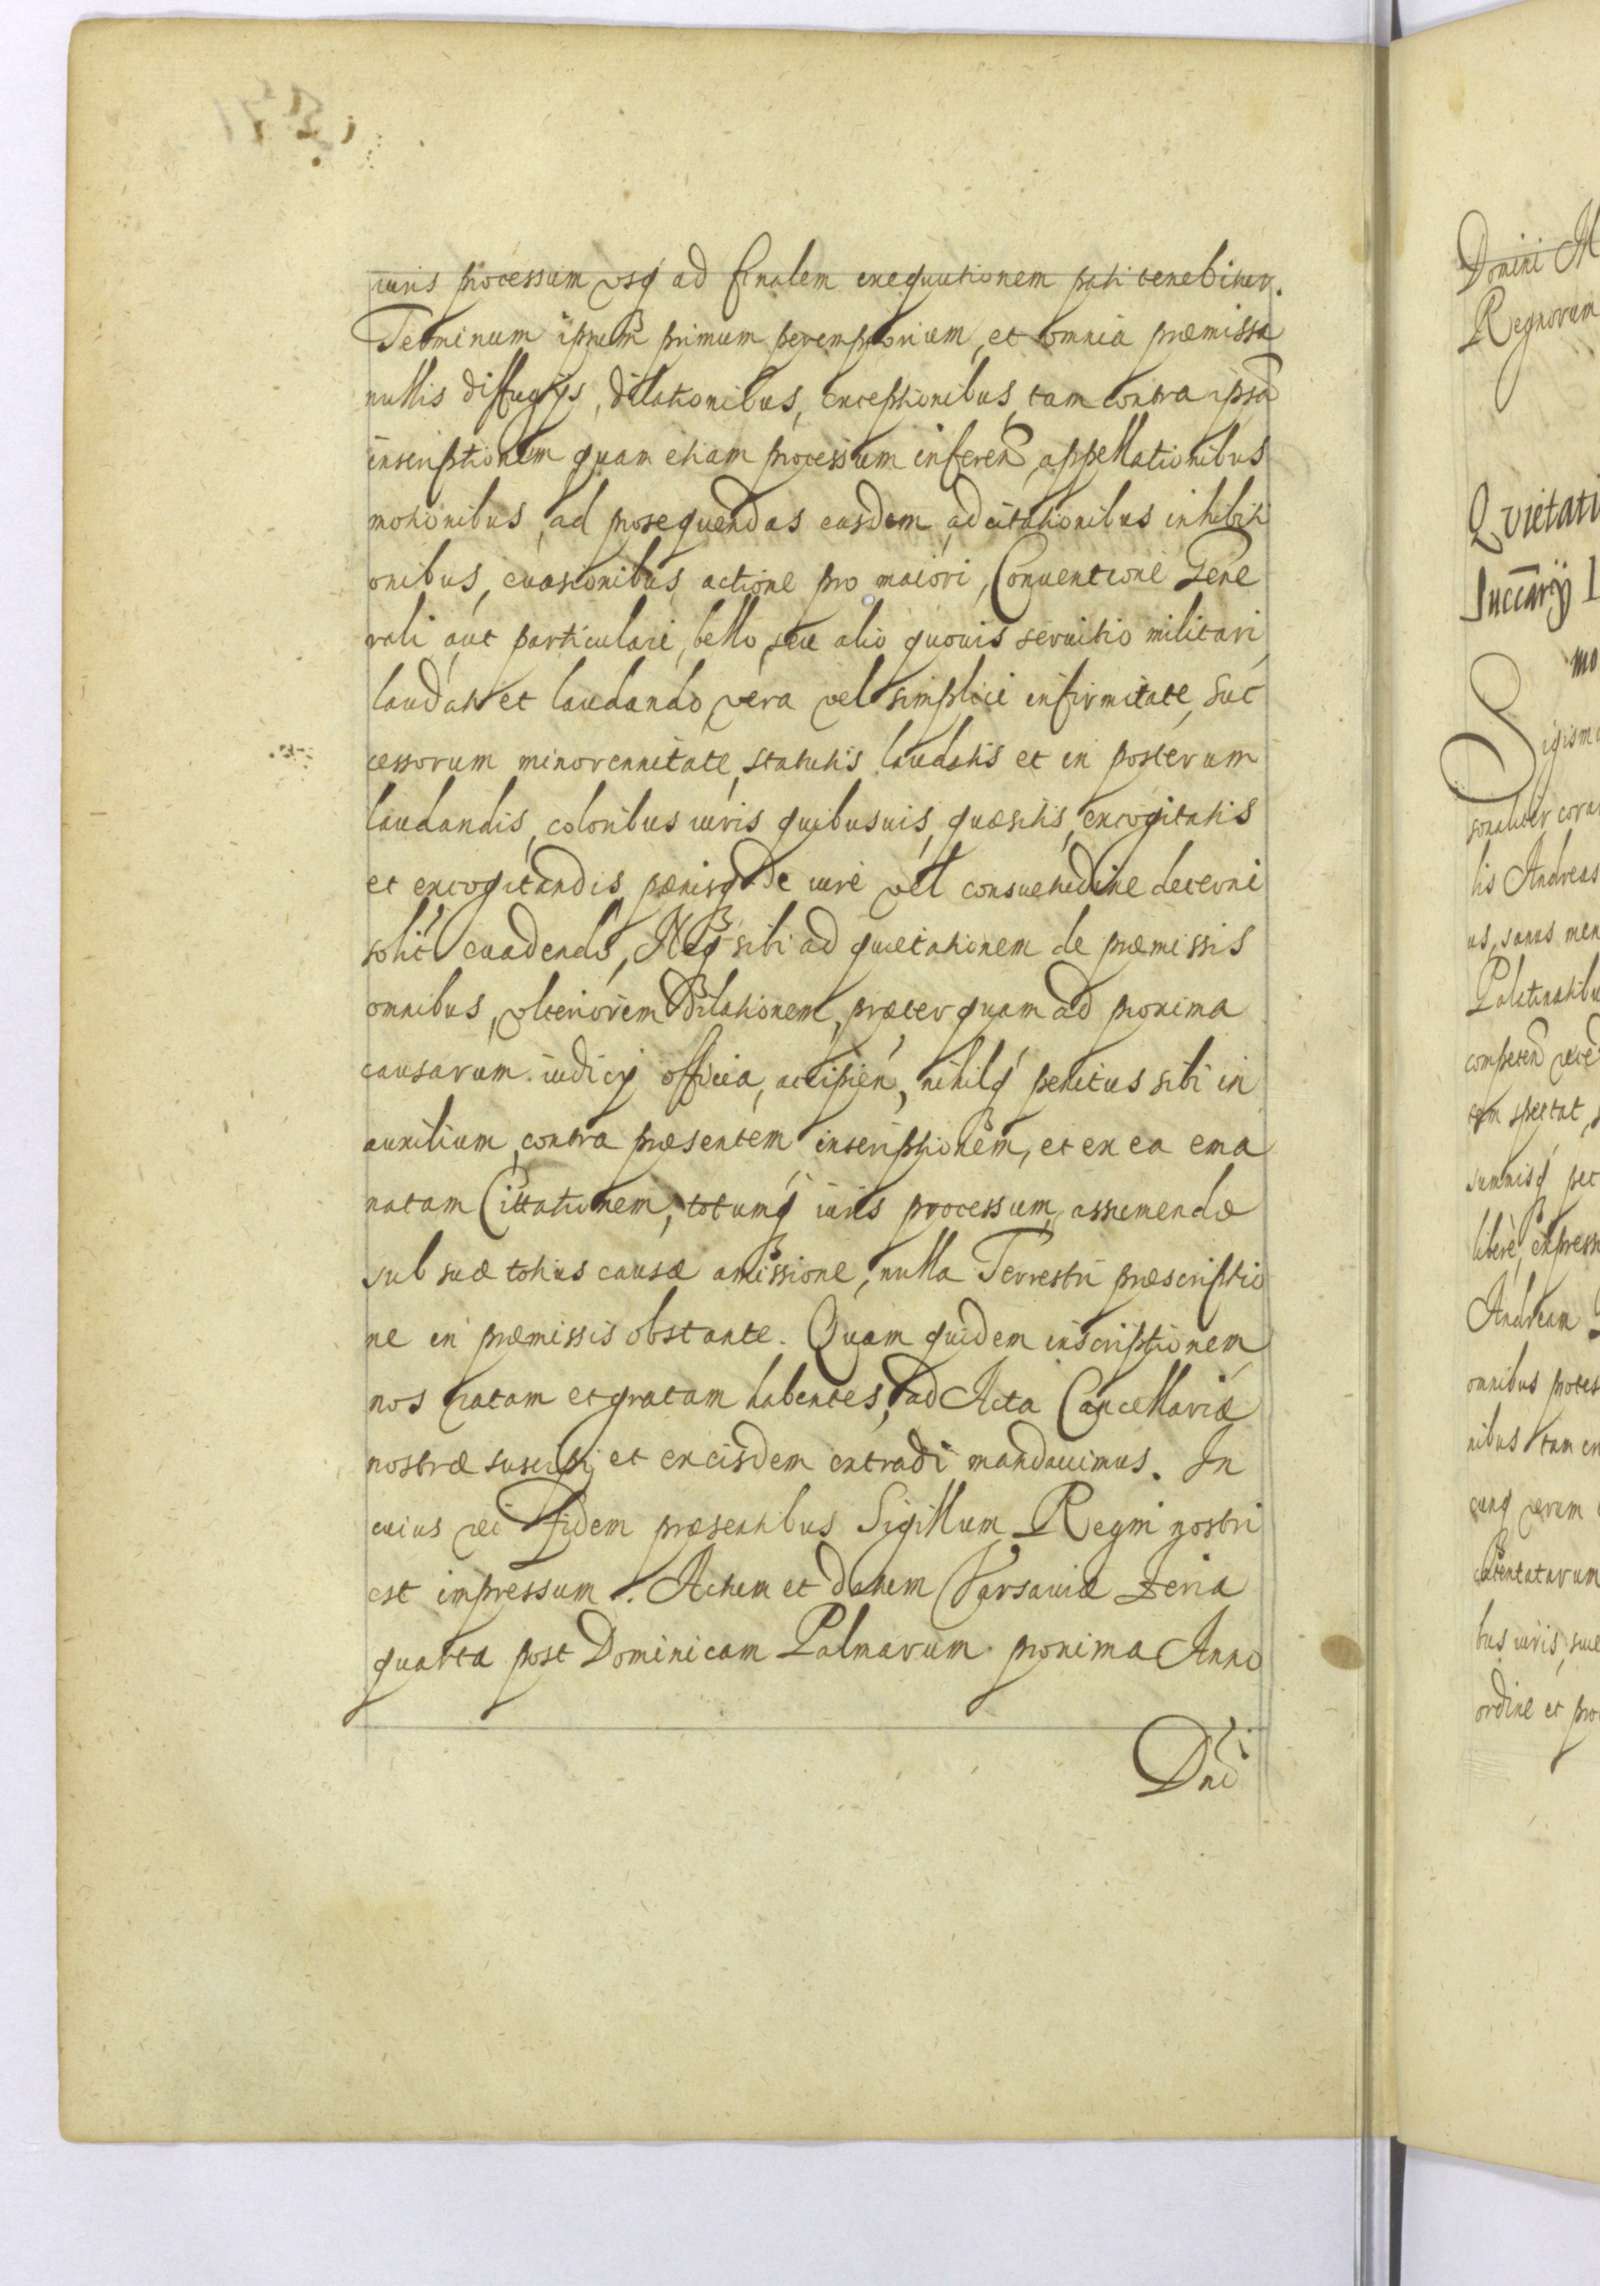 iuris processum usq ad finalem exequutionem pati tenebitur.
Terminum ipsum primum peremptorium, et omnia præmissa
nullis diffugijs, dilationibus, exceptionibus, tam contra ipsã
inscriptionem quam etiam processum inferen, appellationibus
motionibus, ad prosequendas easdem, adcitationibus inhibiti
onibus, euasionibus actione pro maiori, Conuentione Gene
rali aut particulari, bello, seu alio quouis seruitio militari,
laudato et laudando, vera vel simplici infirmitate, Suc
cessorum minorennitate, statutis laudatis et in posterum
laudandis, coloribus iuris quibusuis, quæsitis, excogitatis
et excogitandis, pænisq de iure vel consuetudine decerni
solit euadendo, Neq sibi ad quietationem de præmissis
omnibus, vlteriorem dilationem, præterquam ad proxima
causarum iudicij officia, accipien, nihilq penitus sibi in
auxilium, contra præsentem inscriptionem, et ex ea ema
natam Cittationem, totumq iuris processum, assumendo
sub suæ totius causæ amissione, nulla Terrestri præscriptio
ne in præmissis obstante. Quam quidem inscriptionem
nos ratam et gratam habentes, ad Acta Cancellariæ
nostræ suscipi, et ex eisdem extradi mandauimus. In
cuius rei fidem præsentibus Sigillum Regni nostri
est impressum. Actum et datum Varsauiæ Feria
quarta post Dominicam Palmarum proxima Anno
Dni
Domini
Regnorum
Quietati
Succarij
Sigism
lis Andreas
us, sanus men
Palatinatibu
tem spectat,
sumnisq pec
liberè, express
Andream
omnibus
nibus tam
bus iuris, siue
ordine et pro